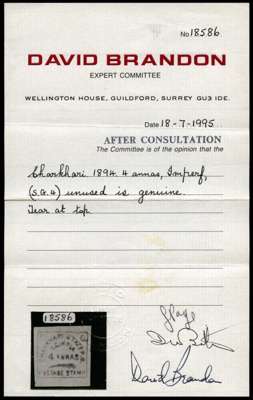 No 18586.
DAVID BRANDON
EXPERT COMMITTEE
WELLINGTON HOUSE, GUILDFORD, SURREY GU3 IDE.
Date 18-7-1995.
AFTER CONSULTATION
The Committee is of the opinion that the
Charkhari 1894. 4 annas, Imperf,
(S.G.4) unused is genuine.
Tear at top
18586
4 ANNAS
POSTAGE STAMP
David Brandon